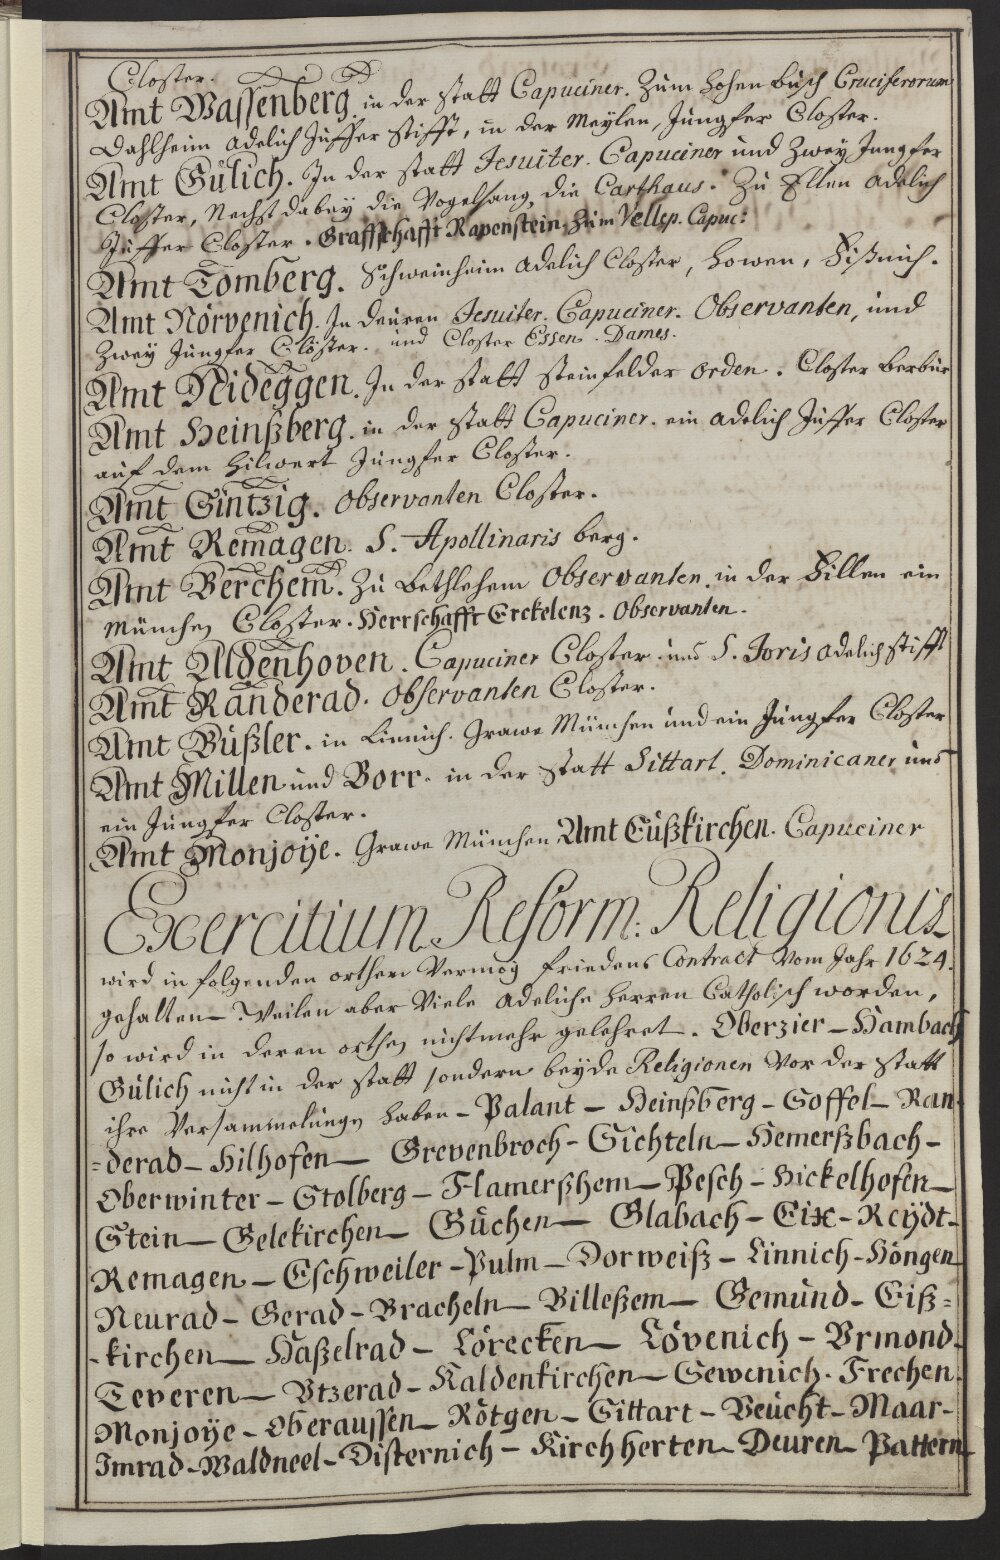 Closter.
Amt Wassenberg. in der statt Capuciner. Zum hohen busch Cruciferorum
Dahlheim adelich Juffer stifft, in der Meylen, Jungfer Closter.
Amt Gülich. In der statt Jesuiter. Capuciner und Zwey Jungfer
Closter, Nechst dabey die Vogelsang, die Carthaus. Zu Ellen adelich
Juffer Closter. Graffschafft Rapenstein zum Vellep. Capuc:
Amt Tomberg. Schweinheim adelich Closter, howen, Sißnich.
Amt Nörvenich. In Deuren Jesuiter. Capuciner. Observanten, und
Zwey Jungfer Clöster. und Closter Essen. Dames.
Amt Nideggen. In der statt steinfelder orden. Closter berbur
Amt Heinßberg. in der statt Capuciner. ein adelich Juffer Closter
auf dem hilwert Jungfer Closter.
Amt Sintzig. Observanten Closter.
Amt Remagen. S. Apollinaris berg.
Amt Berchem. Zu bethlehem Observanten. in der Sillen ein
München Closter. Herrschafft Erckelenz. Observanten.
Amt Aldenhoven. Capuciner Closter. und S. Joris adelich stifft
Amt Randerad. Observanten Closter.
Amt Bußler. in Linnich. Grawe München und ein Jungfer Closter
Amt Millen und Borr. in der statt Sittart. Dominicaner und
ein Jungfer Closter.
Amt Monjoije. Grawe München Amt Eüßkirchen. Capuciner
Exercitium Reform: Religionis
wird in folgenden orthern Vermög friedens Contract Vom Jahr 1624.
gehalten. Weilen aber Viele adeliche herren Catholisch worden,
so wird in deren orthen nicht mehr gelehret. Oberzier – Hambach
Gülich nicht in der statt sondern beyde Religionen Vor der statt
ihre Versammelungen haben – Palant – Heinßberg – Soffel – Ran
=derad – Hilhofen – Grevenbroch – Sichteln – Hemerßbach –
Oberwinter – Stolberg – Flamerßhem – Pesch – Hickelhofen –
Stein – Gelekirchen – Güchen – Glabach – Eix – Reÿdt –
Remagen – Eschweiler – Pulm – Dorweiß – Linnich – Höngen
Neurad – Gerad – Bracheln – Billeßem – Gemünd – Eiß=
-kirchen – Haßelrad – Lörecken – Lövenich – Vrmond –
Teveren – Vtzerad – Kaldenkirchen – Gewenich. Frechen.
Monjoije – Oberaussen – Rötgen – Sittart – Veucht – Maar –
Imrad – Waldneel – Disternich – Kirchherten – Deuren – Pattern